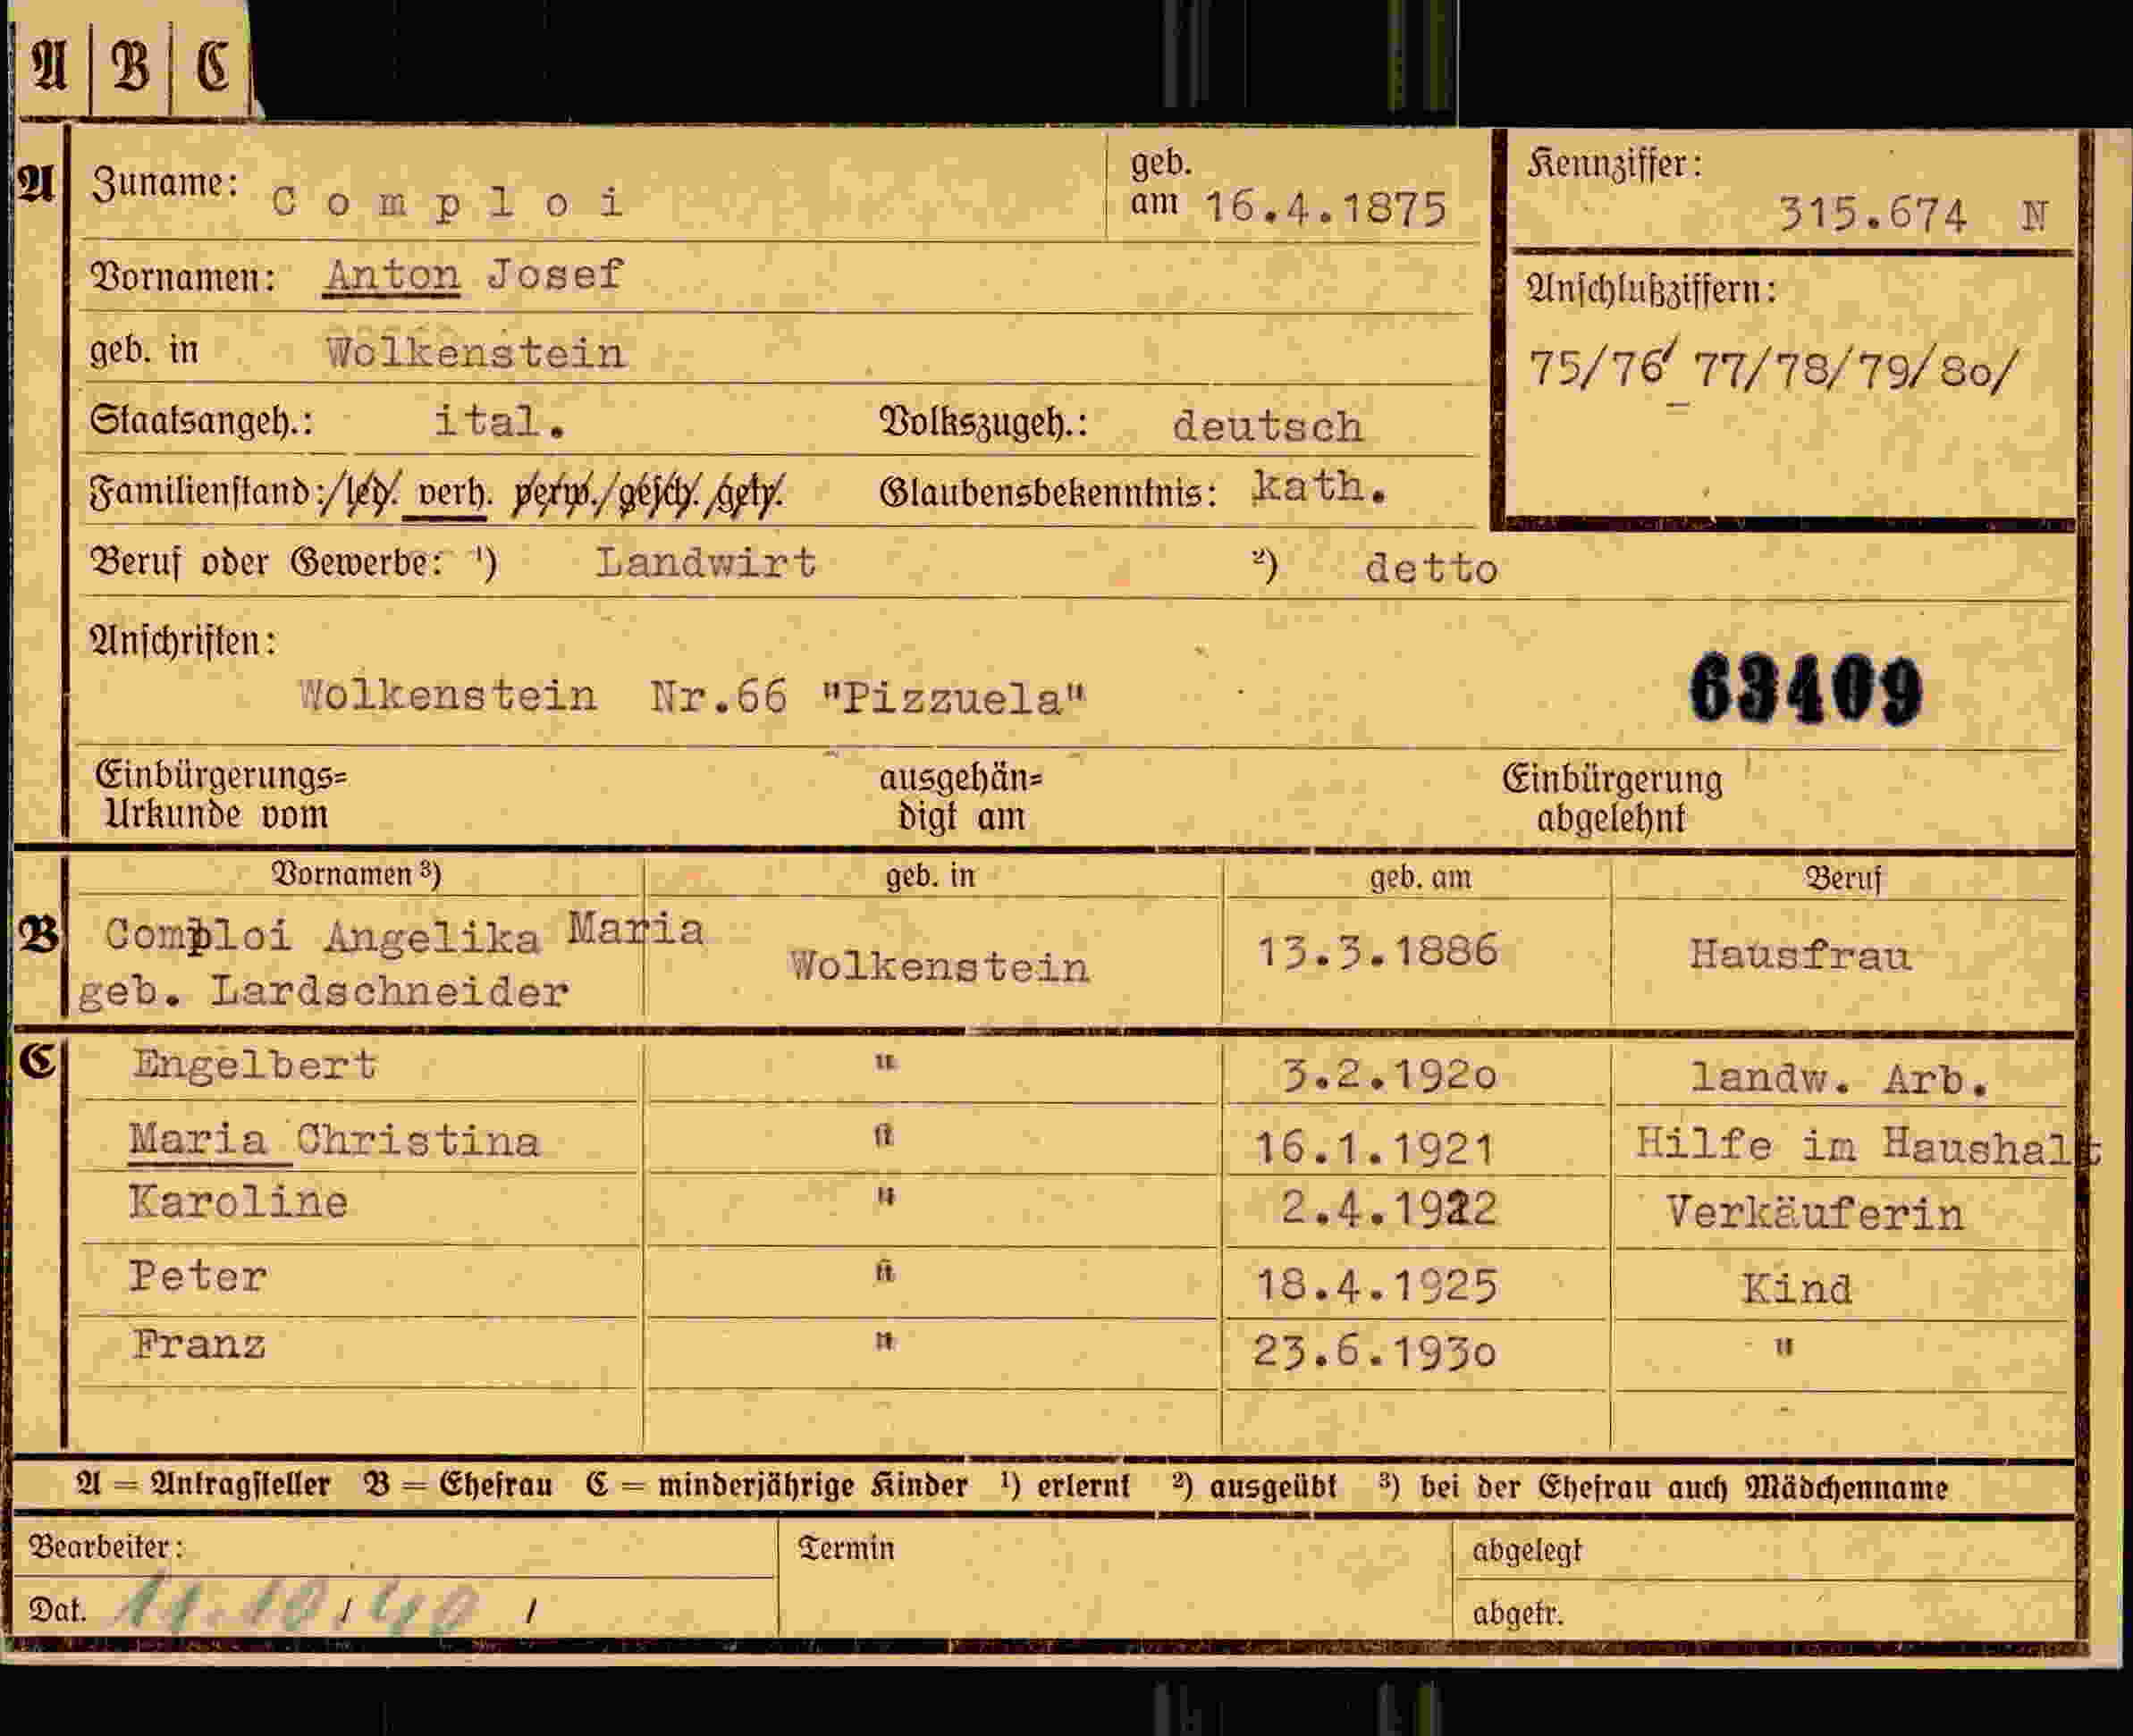 A | B | C
A Zuname: Comploi geb. am 16.4.1875
Kennziffer: 315.674 N
Vornamen: Anton Josef
Anschlußziffern:
75/76/ 77/78/79/80/
geb. in Wolkenstein
Staatsangeh.: ital. Volkszugeh.: deutsch
Familienstand:/led. verh. verw./gesch./getr. Glaubensbekenntnis: kath.
Beruf oder Gewerbe: ¹) Landwirt ²) detto
Anschriften:
Wolkenstein Nr.66 "Pizzuela"
63409
Einbürgerungs=
Urkunde vom
ausgehän=
digt am
Einbürgerung
abgelehnt
Vornamen ³) geb. in geb. am Beruf
B Comploi Angelika Maria
geb. Lardschneider Wolkenstein 13.3.1886 Hausfrau
C Engelbert " 3.2.1920 landw. Arb.
Maria Christina " 16.1.1921 Hilfe im Haushalt
Karoline " 2.4.1922 Verkäuferin
Peter " 18.4.1925 Kind
Franz " 23.6.1930 "
A = Antragsteller B = Ehefrau C = minderjährige Kinder ¹) erlernt ²) ausgeübt ³) bei der Ehefrau auch Mädchenname
Bearbeiter: Termin abgelegt
Dat. 11.10.40 / abgetr.